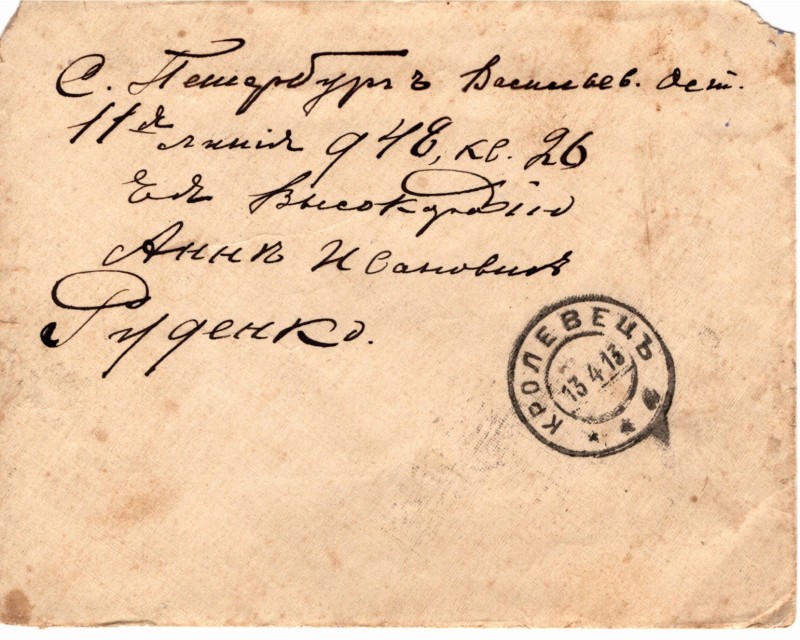 С. Петербургъ Васильев. Ост.
11я линія д 48, кв. 26
Ея Высокородію
Аннѣ Ивановнѣ
Руденко.
КРОЛЕВЕЦЪ
13.4.13